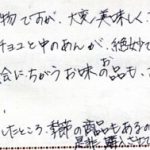 物ですが、大変美味しく、
チョコと中のあんが、絶妙で
会にちがうお味お品も、
したところ、季節の商品もあるの
是非、購入させて